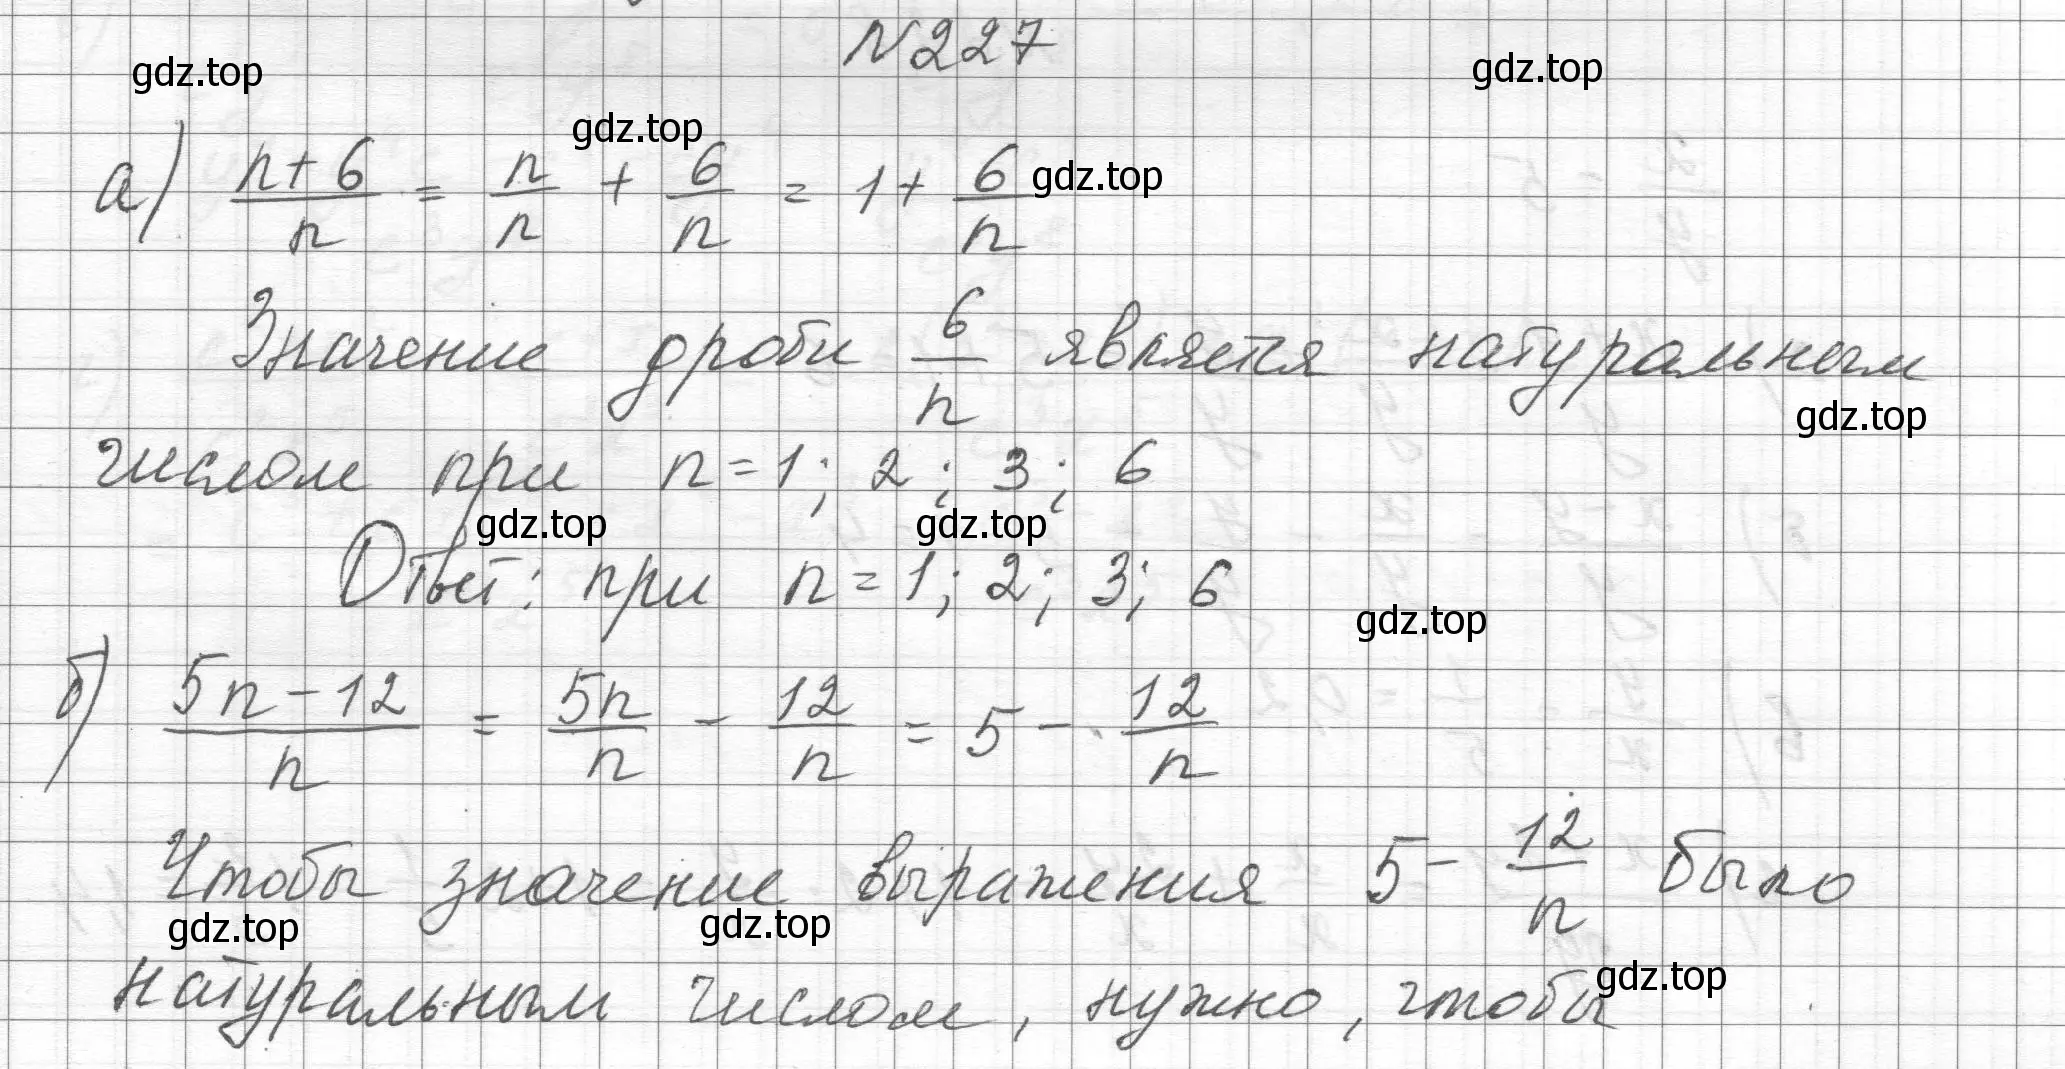 N227
gdz.top
gdz.top
gdz.top
а) (n+6)/n = n/n + 6/n = 1 + 6/n
gdz.top
Значение дроби 6/n является натуральным
gdz.top
числом при n=1; 2; 3; 6
gdz.top
gdz.top
Ответ: при n=1; 2; 3; 6
gdz.top
б) (5n-12)/n = 5n/n - 12/n = 5 - 12/n
Чтобы значение выражения 5 - 12/n было
gdz.top
gdz.top
gdz.top
натуральным числом, нужно, чтобы